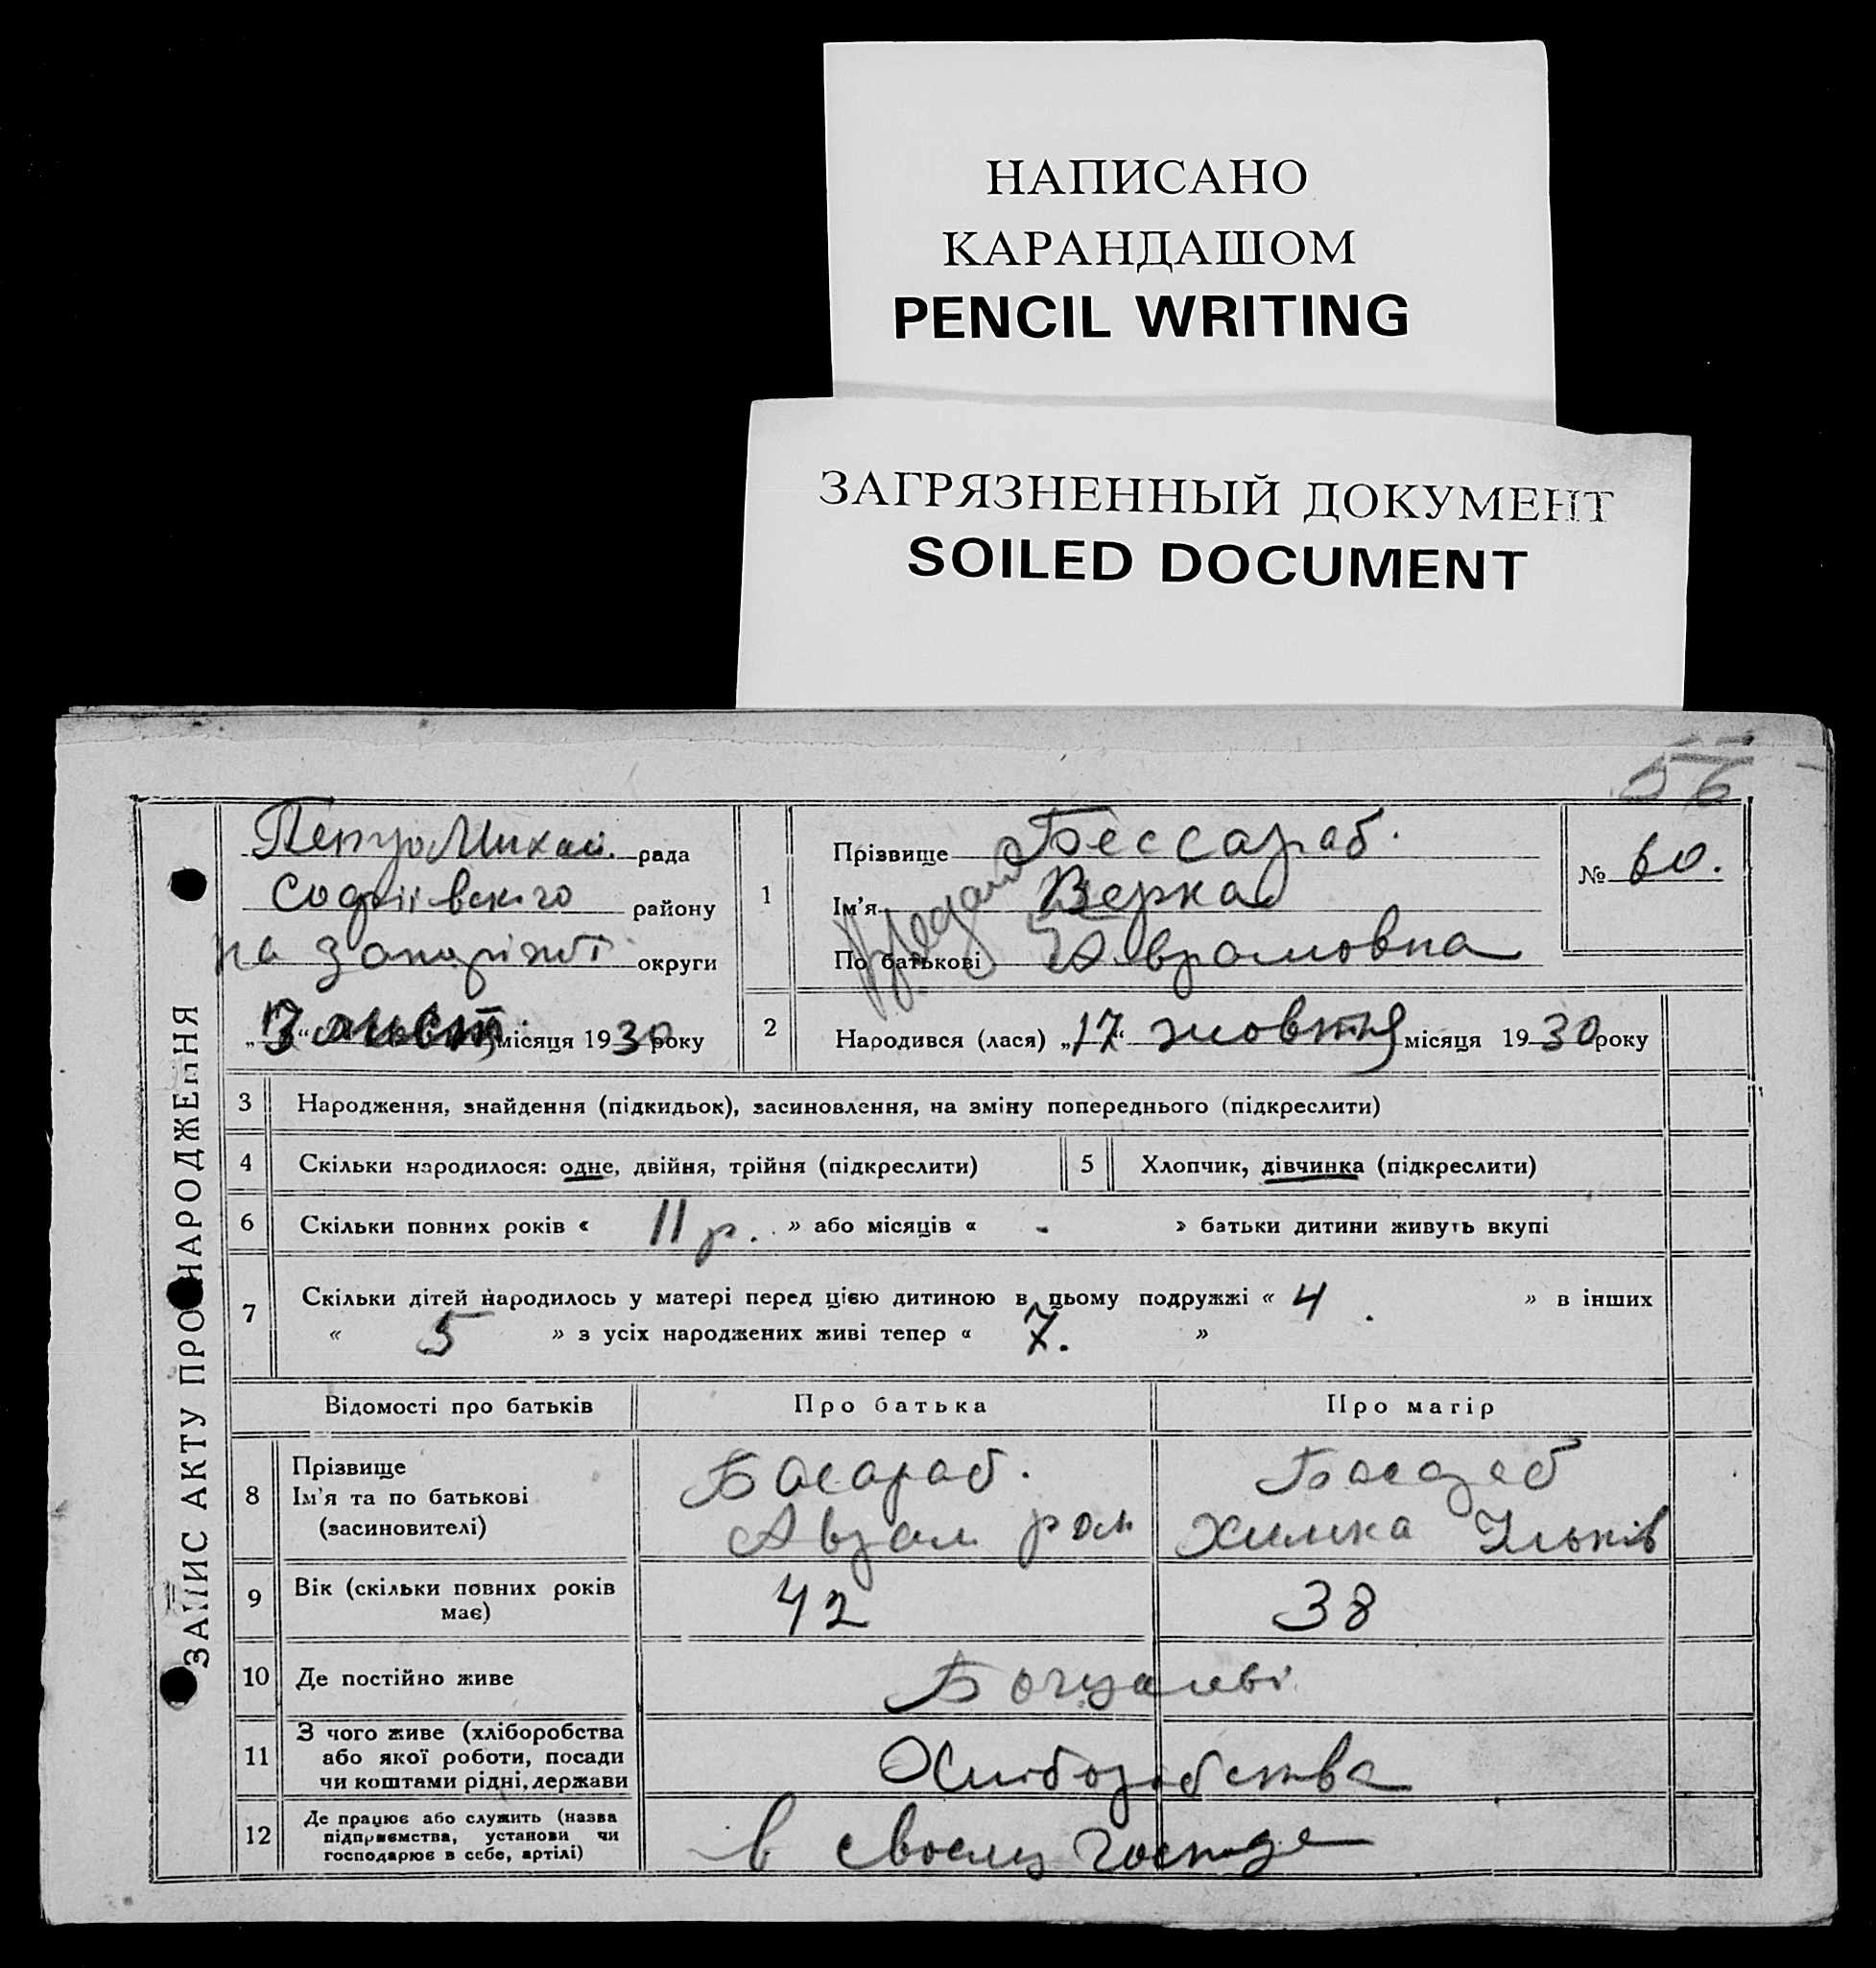 НАПИСАНО
КАРАНДАШОМ
PENCIL WRITING
ЗАГРЯЗНЕННЫЙ ДОКУМЕНТ
SOILED DOCUMENT
56
ЗАПИС АКТУ ПРО НАРОДЖЕННЯ
ПетроМихай. рада
Софіївского району
на запоріжті округи
„3“ місяця 1930 року
1
Прізвище Бессараб.
Ім'я Верка
По батькові Аврамовна
№ 60.
2
Народився (лася) „17“ жовтня місяця 1930 року
3 Народження, знайдення (підкидьок), засиновлення, на зміну попереднього (підкреслити)
4 Скільки народилося: одне, двійня, трійня (підкреслити)
5 Хлопчик, дівчинка (підкреслити)
6 Скільки повних років « 11 р. » або місяців « - » батьки дитини живуть вкупі
7 Скільки дітей народилось у матері перед цією дитиною в цьому подружжі « 4. » в інших
« 5 » з усіх народжених живі тепер « 7. »
Відомості про батьків Про батька Про матір
8 Прізвище
Ім'я та по батькові
(засиновителі)
Басараб.
Аврам ром
Басараб
Химка Ильків
9 Вік (скільки повних років
має)
42 38
10 Де постійно живе
11 З чого живе (хліборобства
або якої роботи, посади
чи коштами рідні, держави
Хліборобства
12 Де працює або служить (назва
підприємства, установи чи
господарює в себе, артілі)
в своєму